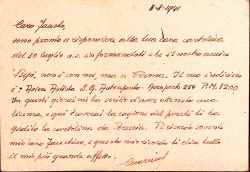 8-8-1941
Caro Fausto,
sono pronto a rispondere alla tua cara cartolina
del 30 luglio u.s. informandoti che il nostro amico
"Pipi", non è con me, ma a Verona. Il suo indirizzo
è: Aviere Autista S. G. Autoreparto Aeroporto 254 P.M. 3200
In questi giorni mi ha scritto d'aver ottenuto una
licenza, e qui troverai la ragione del perchè ti ha
spedito la cartolina da Brescia. Ti ricordo sovente
mio caro Faustino, e questo mio ricordo ti dica tutto
il mio più grande affetto.